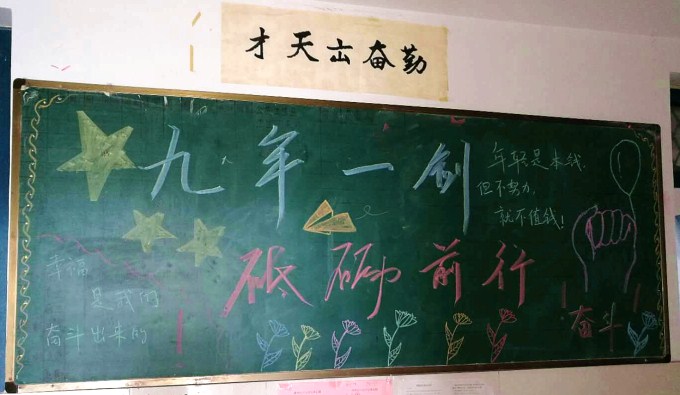 勤奋出天才
九年一剑
砥砺前行
年轻是本钱,
但不努力,
就不值钱!
幸福
是我们
奋斗出来的
奋斗